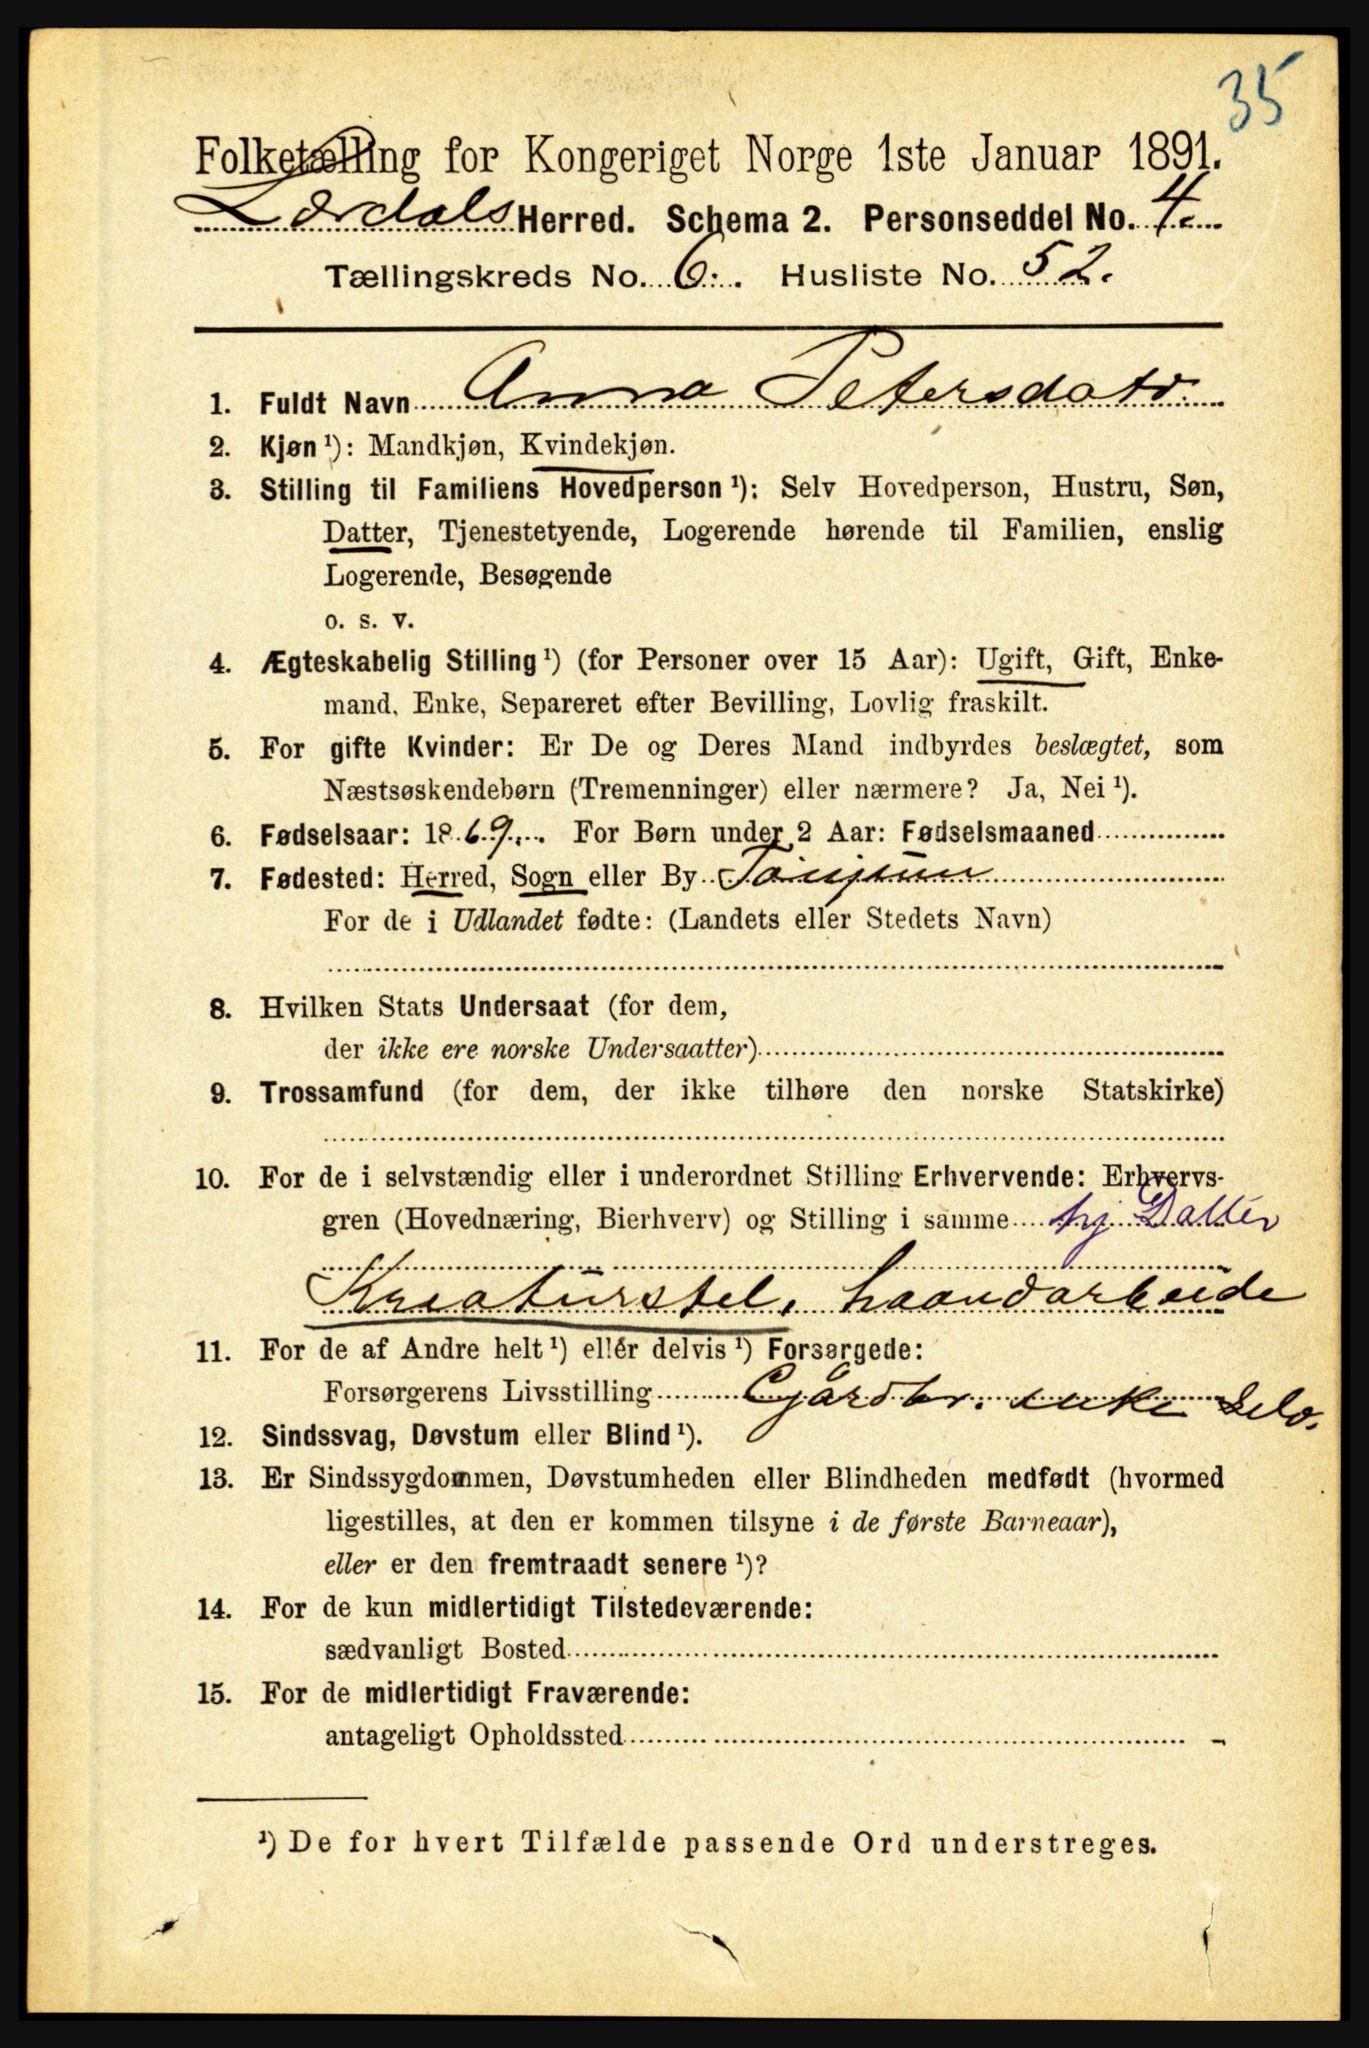 35
Folketælling for Kongeriget Norge 1ste Januar 1891.
Lærdals Herred. Schema 2. Personseddel No. 4.
Tællingskreds No. 6. Husliste No. 52.
1. Fuldt Navn Anna Petersdatr.
2. Kjøn ¹): Mandkjøn, Kvindekjøn.
3. Stilling til Familiens Hovedperson ¹): Selv Hovedperson, Hustru, Søn,
Datter, Tjenestetyende, Logerende hørende til Familien, enslig
Logerende, Besøgende
o. s. v.
4. Ægteskabelig Stilling ¹) (for Personer over 15 Aar): Ugift, Gift, Enke-
mand, Enke, Separeret efter Bevilling, Lovlig fraskilt.
5. For gifte Kvinder: Er De og Deres Mand indbyrdes beslægtet, som
Næstsøskendebørn (Tremenninger) eller nærmere? Ja, Nei ¹).
6. Fødselsaar: 1869. For Børn under 2 Aar: Fødselsmaaned
7. Fødested: Herred, Sogn eller By Tønjum
For de i Udlandet fødte: (Landets eller Stedets Navn)
8. Hvilken Stats Undersaat (for dem,
der ikke ere norske Undersaatter)
9. Trossamfund (for dem, der ikke tilhøre den norske Statskirke)
10. For de i selvstændig eller i underordnet Stilling Erhvervende: Erhvervs-
gren (Hovednæring, Bierhverv) og Stilling i samme hj Datter
Kreaturstel, haandarbeide
11. For de af Andre helt ¹) eller delvis ¹) Forsørgede:
Forsørgerens Livsstilling Gårdbr. enke Selv.
12. Sindssvag, Døvstum eller Blind ¹).
13. Er Sindssygdommen, Døvstumheden eller Blindheden medfødt (hvormed
ligestilles, at den er kommen tilsyne i de første Barneaar),
eller er den fremtraadt senere ¹)?
14. For de kun midlertidigt Tilstedeværende:
sædvanligt Bosted
15. For de midlertidigt Fraværende:
antageligt Opholdssted
¹) De for hvert Tilfælde passende Ord understreges.